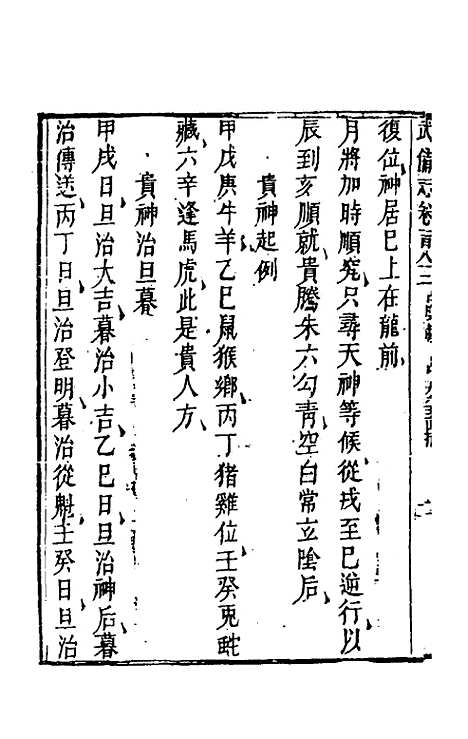 武備志卷
復位神居巳上在龍前
月將加時順究只尋天神等候從戌至巳逆行以
辰到亥順就貴騰朱六勾青空白常玄陰后
貴神起例
甲戊庚牛羊乙巳鼠猴鄉丙丁猪雞位壬癸兎蛇
藏六辛逢馬虎此是貴人方
貴神治旦暮
甲戌日旦治大吉暮治小吉乙巳日旦治神后暮
治傳送丙丁日旦治登明暮治從魁壬癸日旦治